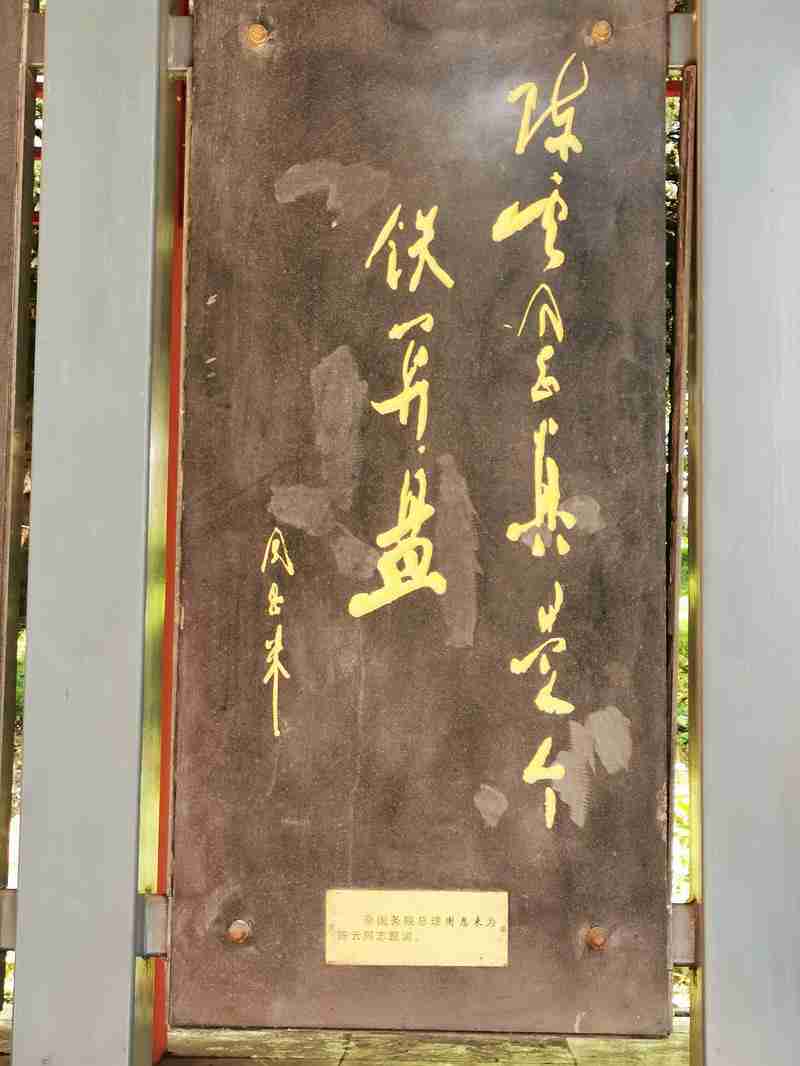 陈云同志真是个
铁算盘
周恩来
原国务院总理周恩来为
陈云同志题词。